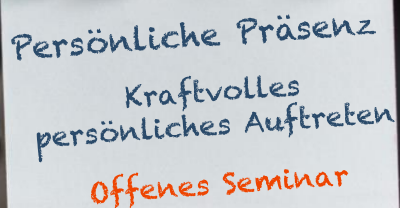 Persönliche Präsenz
Kraftvolles
persönliches Auftreten
Offenes Seminar